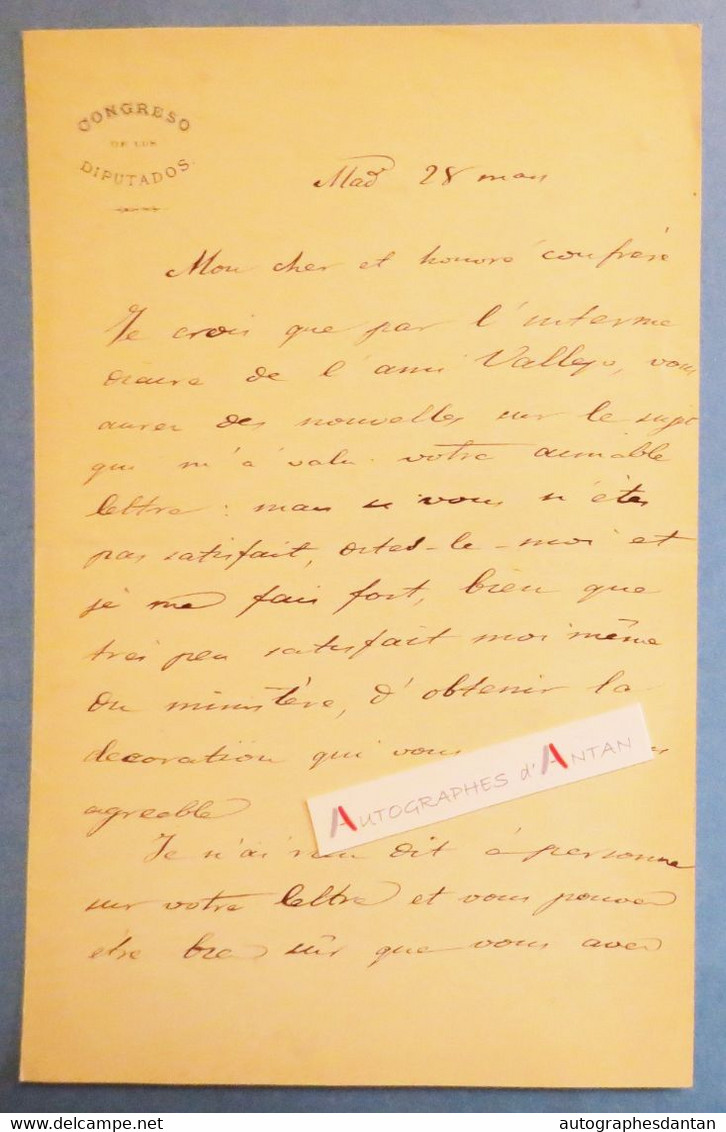 CONGRESO
DE LOS
DIPUTADOS
Mad 28 mars
Mon cher et honoré confrère
Je crois que par l'interme
diaire de l'ami Vallejo, vous
aurez des nouvelles sur le sujet
qui m'a valu votre aimable
lettre : mais si vous n'êtes
pas satisfait, dites-le-moi et
je me fais fort, bien que
très peu satisfait moi même
du ministère, d'obtenir la
decoration qui vous
agreable
Je n'ai rien dit à personne
sur votre lettre et vous pouvez
être bien sûr que vous avez
AUTOGRAPHES d'ANTAN
delcampe.net
autographesdantan